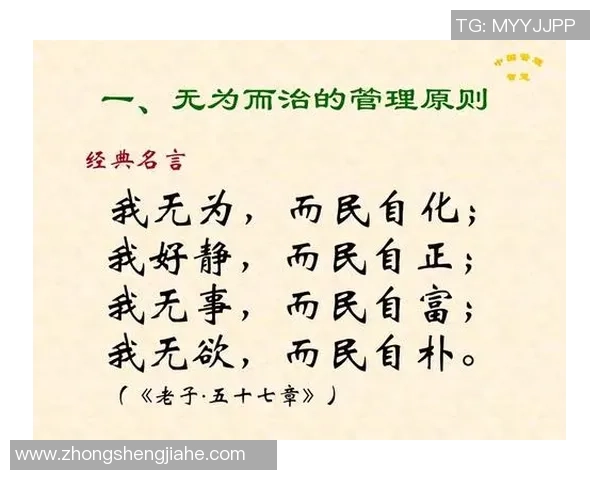 TG: MYYJJPP
中国管理
智慧
一、无为而治的管理原则
经典名言
我无为，而民自化；
我好静，而民自正；
我无事，而民自富；
我无欲，而民自朴。
（《老子·五十七章》）
www.zhongshengjiahe.com